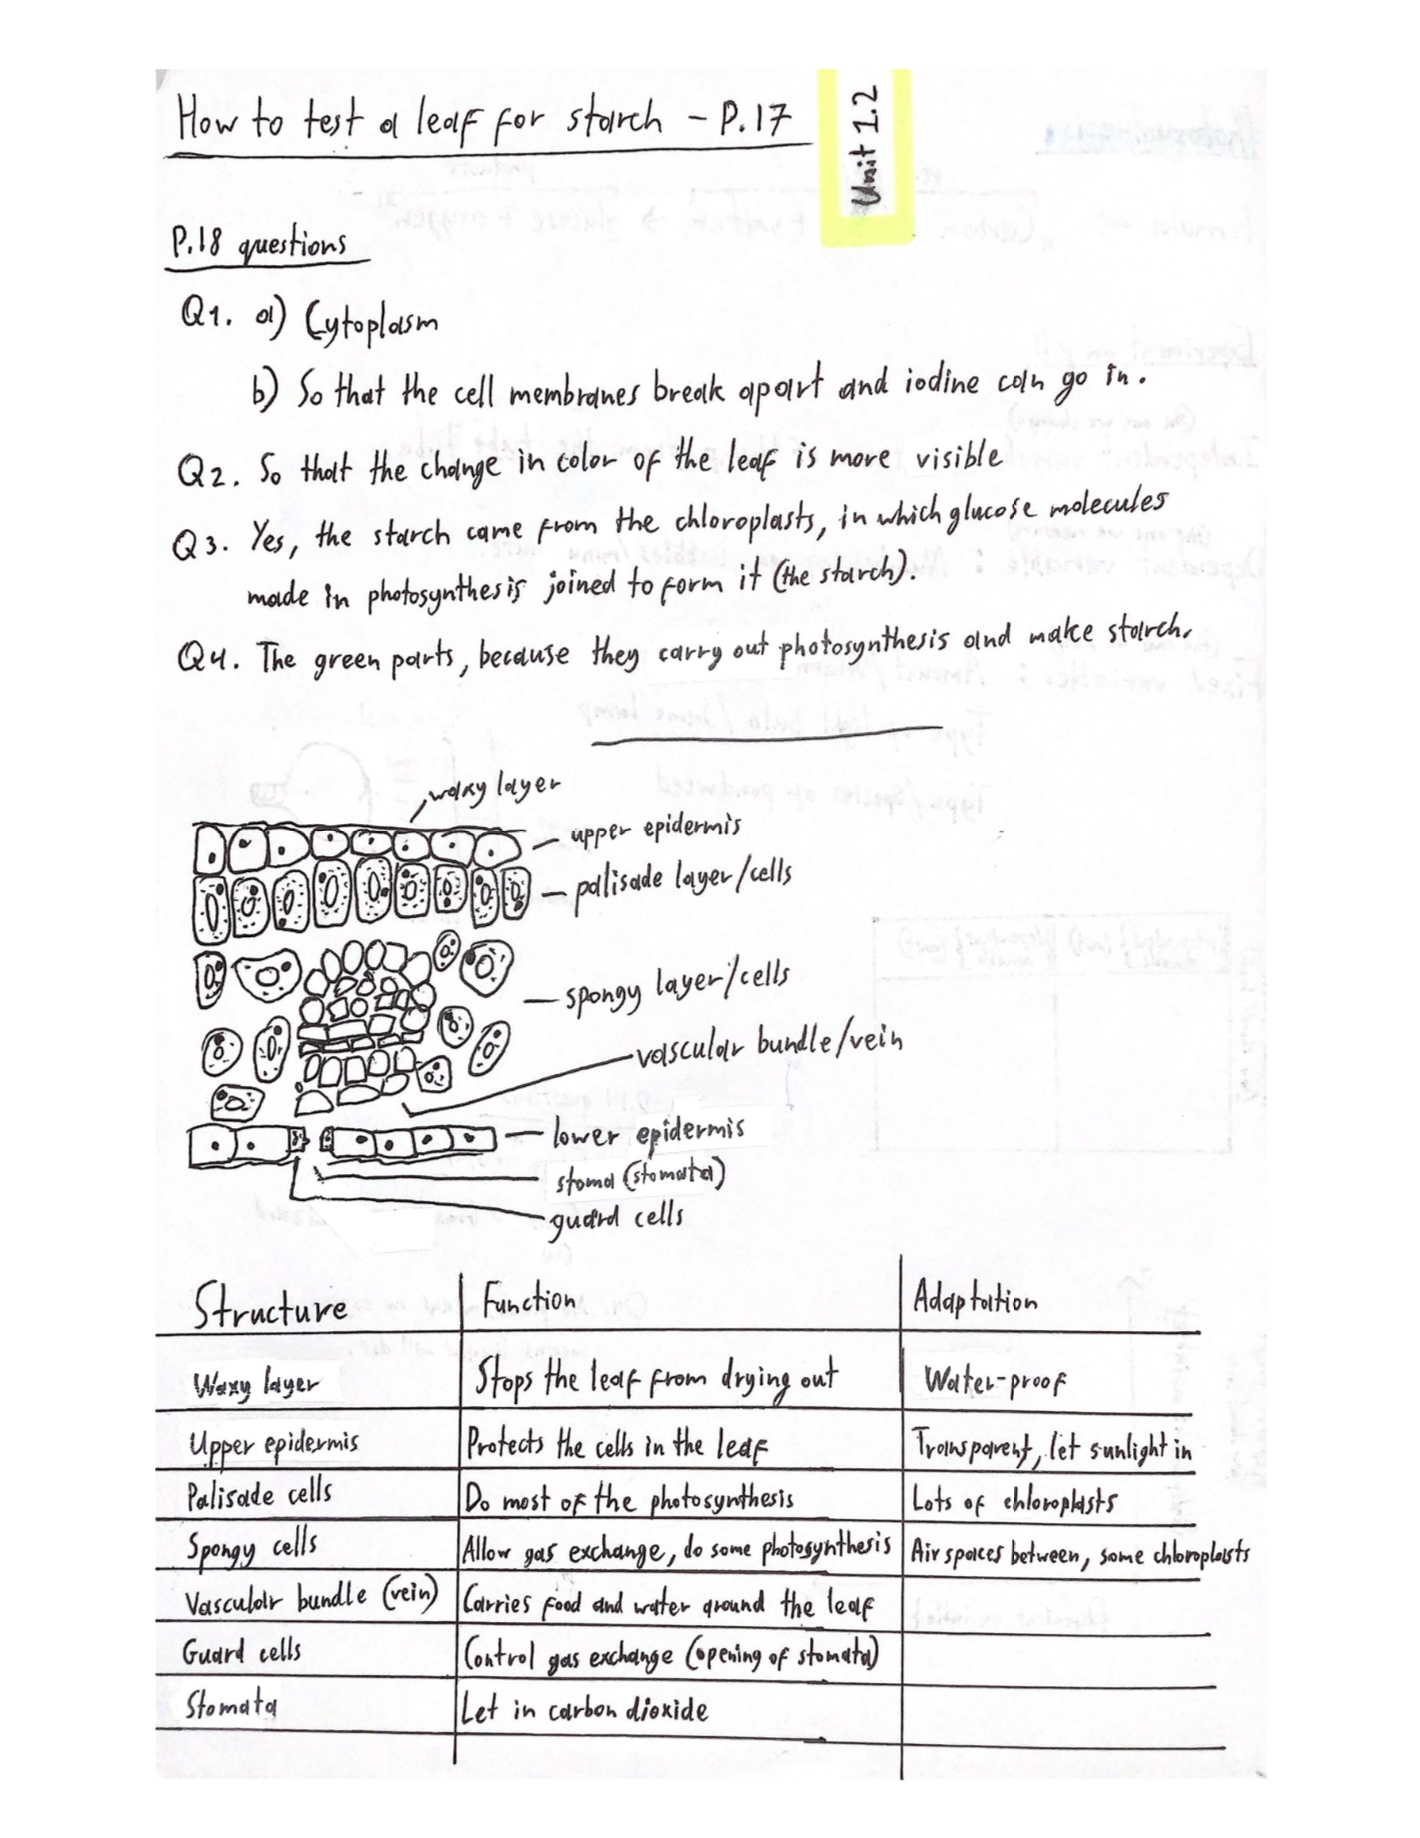 How to test a leaf for starch - P.17
Unit 1.2
P.18 questions
Q1. a) Cytoplasm
b) So that the cell membranes break apart and iodine can go in.
Q2. So that the change in color of the leaf is more visible
Q3. Yes, the starch came from the chloroplasts, in which glucose molecules
made in photosynthesis joined to form it (the starch).
Q4. The green parts, because they carry out photosynthesis and make starch.
waxy layer
upper epidermis
palisade layer/cells
spongy layer/cells
vascular bundle/vein
lower epidermis
stoma (stomata)
guard cells
Structure Function Adaptation
Waxy layer Stops the leaf from drying out Water-proof
Upper epidermis Protects the cells in the leaf Transparent, let sunlight in
Palisade cells Do most of the photosynthesis Lots of chloroplasts
Spongy cells Allow gas exchange, do some photosynthesis Air spaces between, some chloroplasts
Vascular bundle (vein) Carries food and water around the leaf
Guard cells Control gas exchange (opening of stomata)
Stomata Let in carbon dioxide